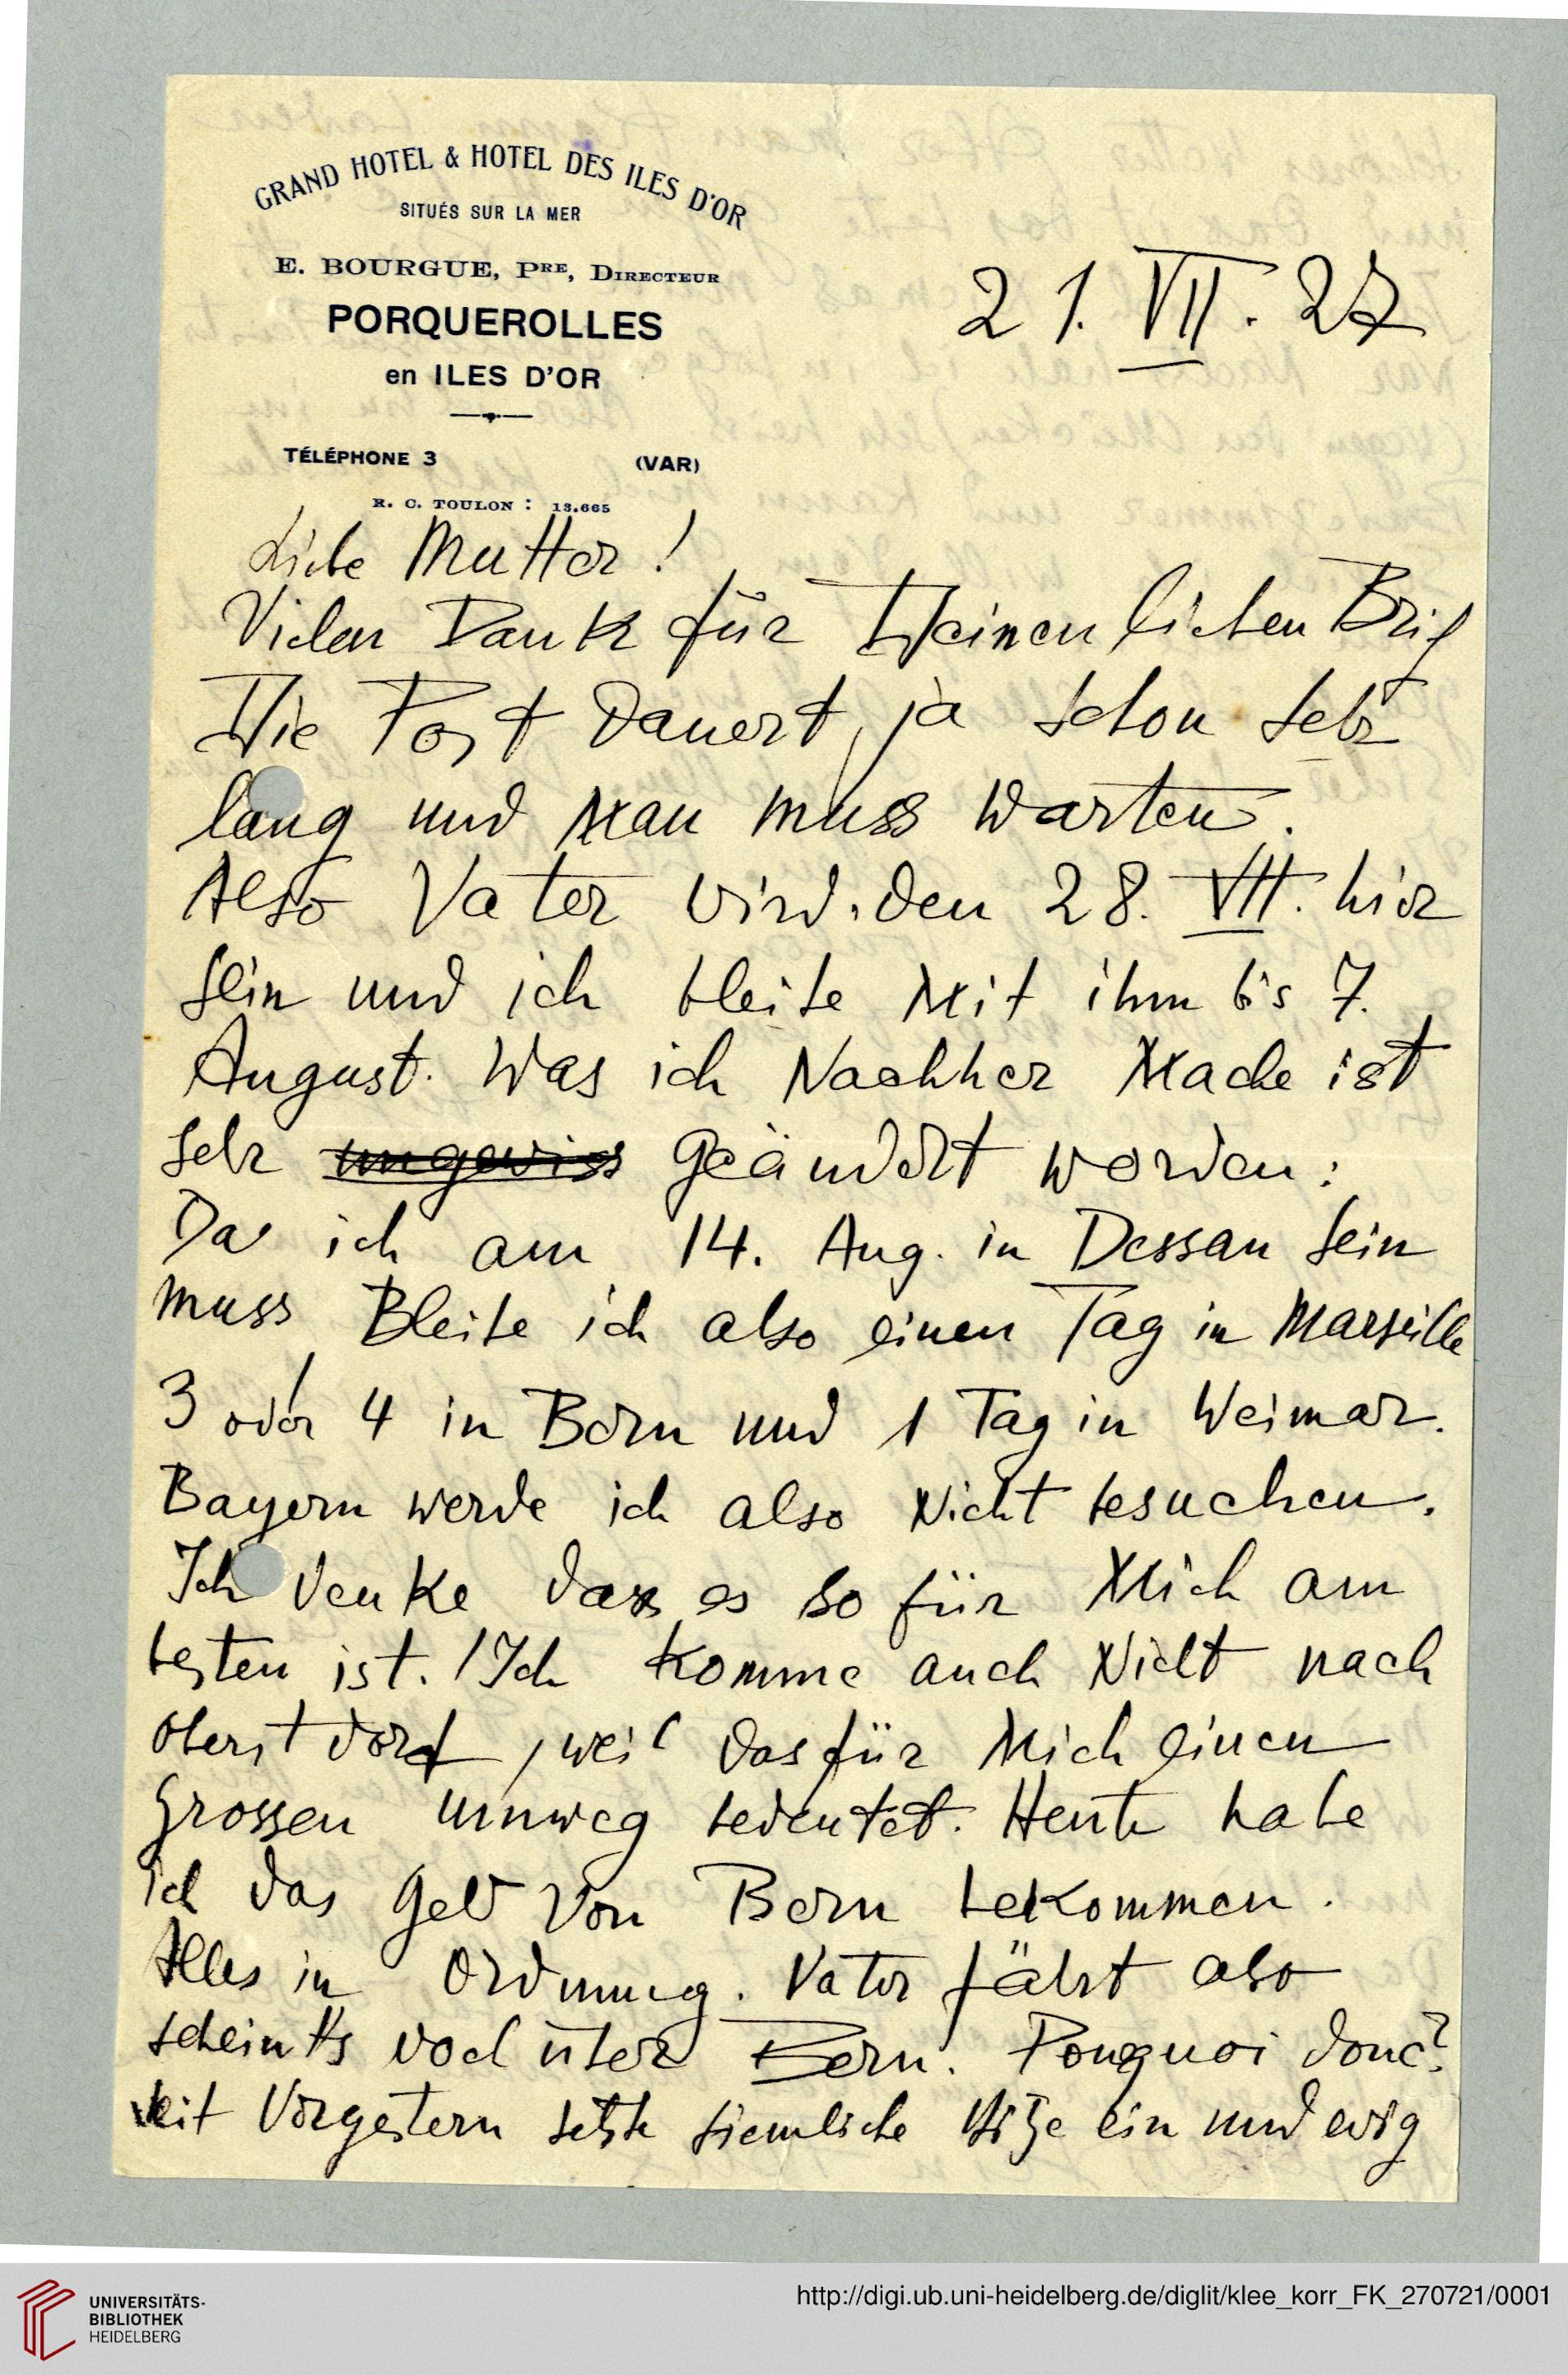 GRAND HOTEL & HOTEL DES ILES D'OR
SITUÉS SUR LA MER
E. BOURGUE, PRE, DIRECTEUR
PORQUEROLLES
en ILES D'OR
TÉLÉPHONE 3 (VAR)
R. C. TOULON : 13.665
21. VII. 27
Liebe Mutter!
Vielen Dank für Deinen lieben Brief
Die Post dauert, ja schon sehr
lang und man muss warten.
Also Vater wird den 28. VII. hier
sein und ich bleibe mit ihm bis 7.
August. Was ich Nachher mache ist
sehr ungewiss geändert worden:
Da ich am 14. Aug. in Dessau sein
muss Bleibe ich also einen Tag in Marseille
3 oder 4 in Bern und 1 Tag in Weimar.
Bayern werde ich also nicht besuchen.
Ich denke dass es so für mich am
besten ist. / Ich komme auch nicht nach
Oberstdorf, weil das für mich einen
Grossen umweg bedeutet. Heute habe
ich das Geld von Bern bekommen.
Alles in Ordnung. Vater fährt also
scheint's doch über Bern. Pourquoi donc?
seit Vorgestern setzte ziemliche Hitze ein und ewig
UNIVERSITÄTS-
BIBLIOTHEK
HEIDELBERG
http://digi.ub.uni-heidelberg.de/diglit/klee_korr_FK_270721/0001